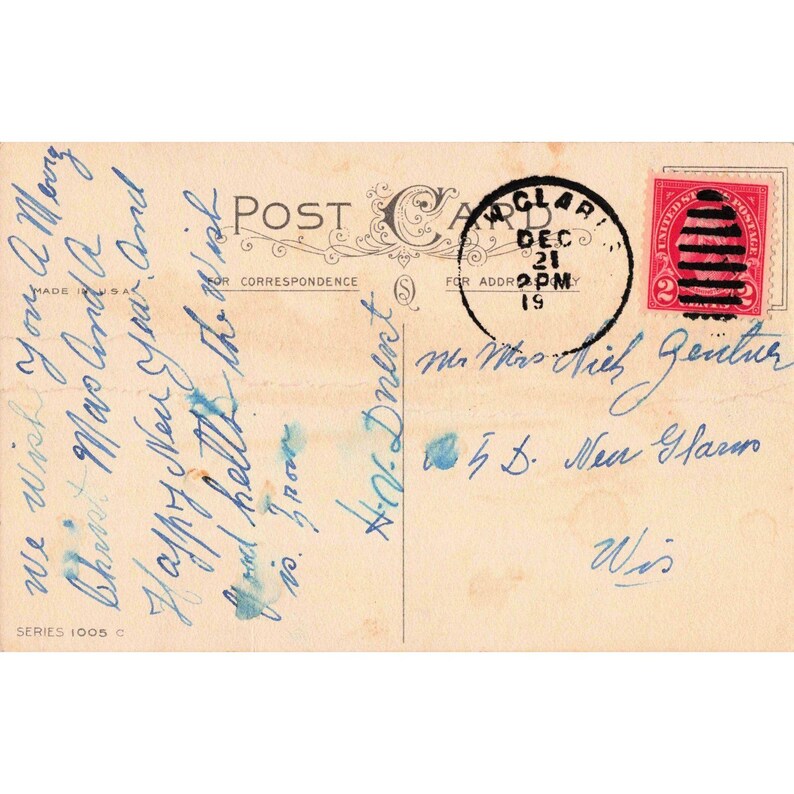 POST CARD
FOR CORRESPONDENCE
FOR ADDRESS ONLY
MADE IN U.S.A.
W GLARUS
DEC
21
2 PM
19
UNITED STATES POSTAGE
2 2
We Wish You A Merry
Christ Mas And A
Happy New Year And
Good helth the Wish
is From
H.V.
Mr Mrs Nick Gentner
5 D. New Glarus
Wis
SERIES 1005 C